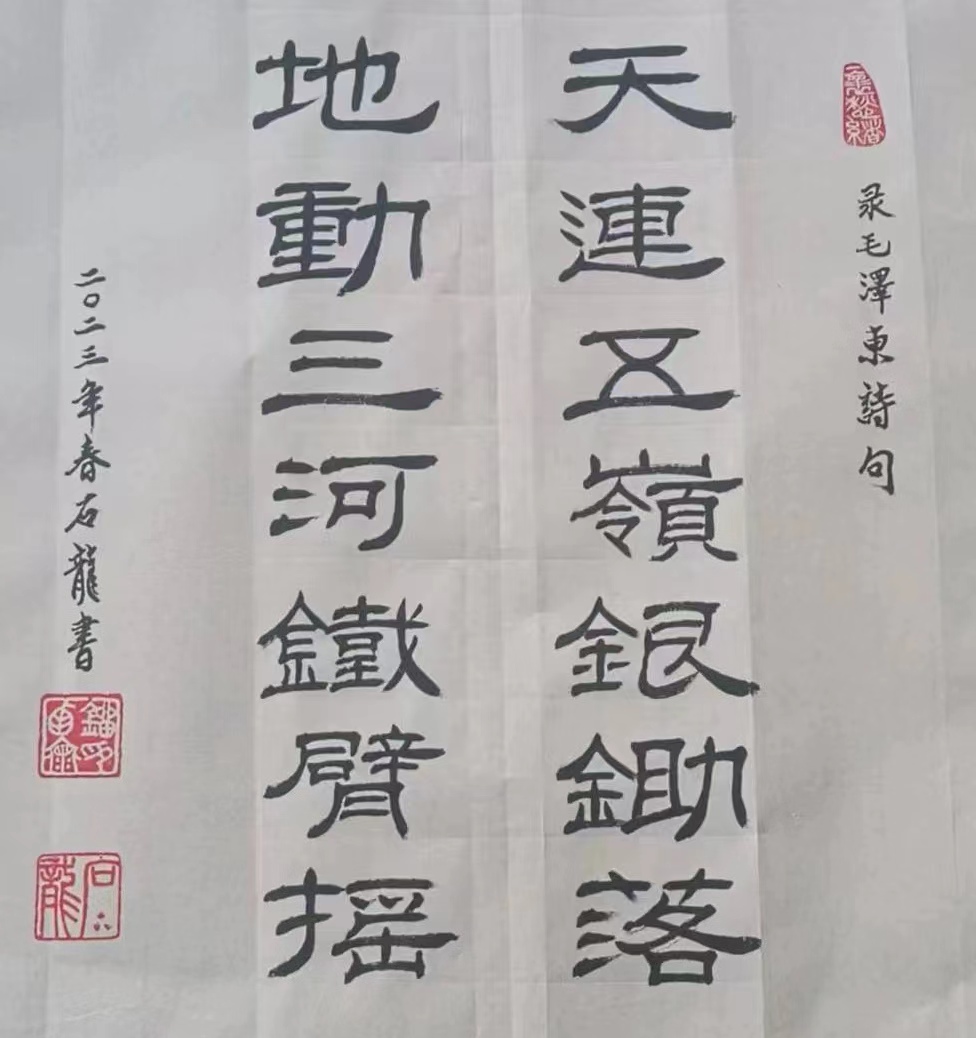 录毛澤東詩句
天連五嶺銀鋤落
地動三河鐵臂摇
二〇二三年春石龍書
石龍